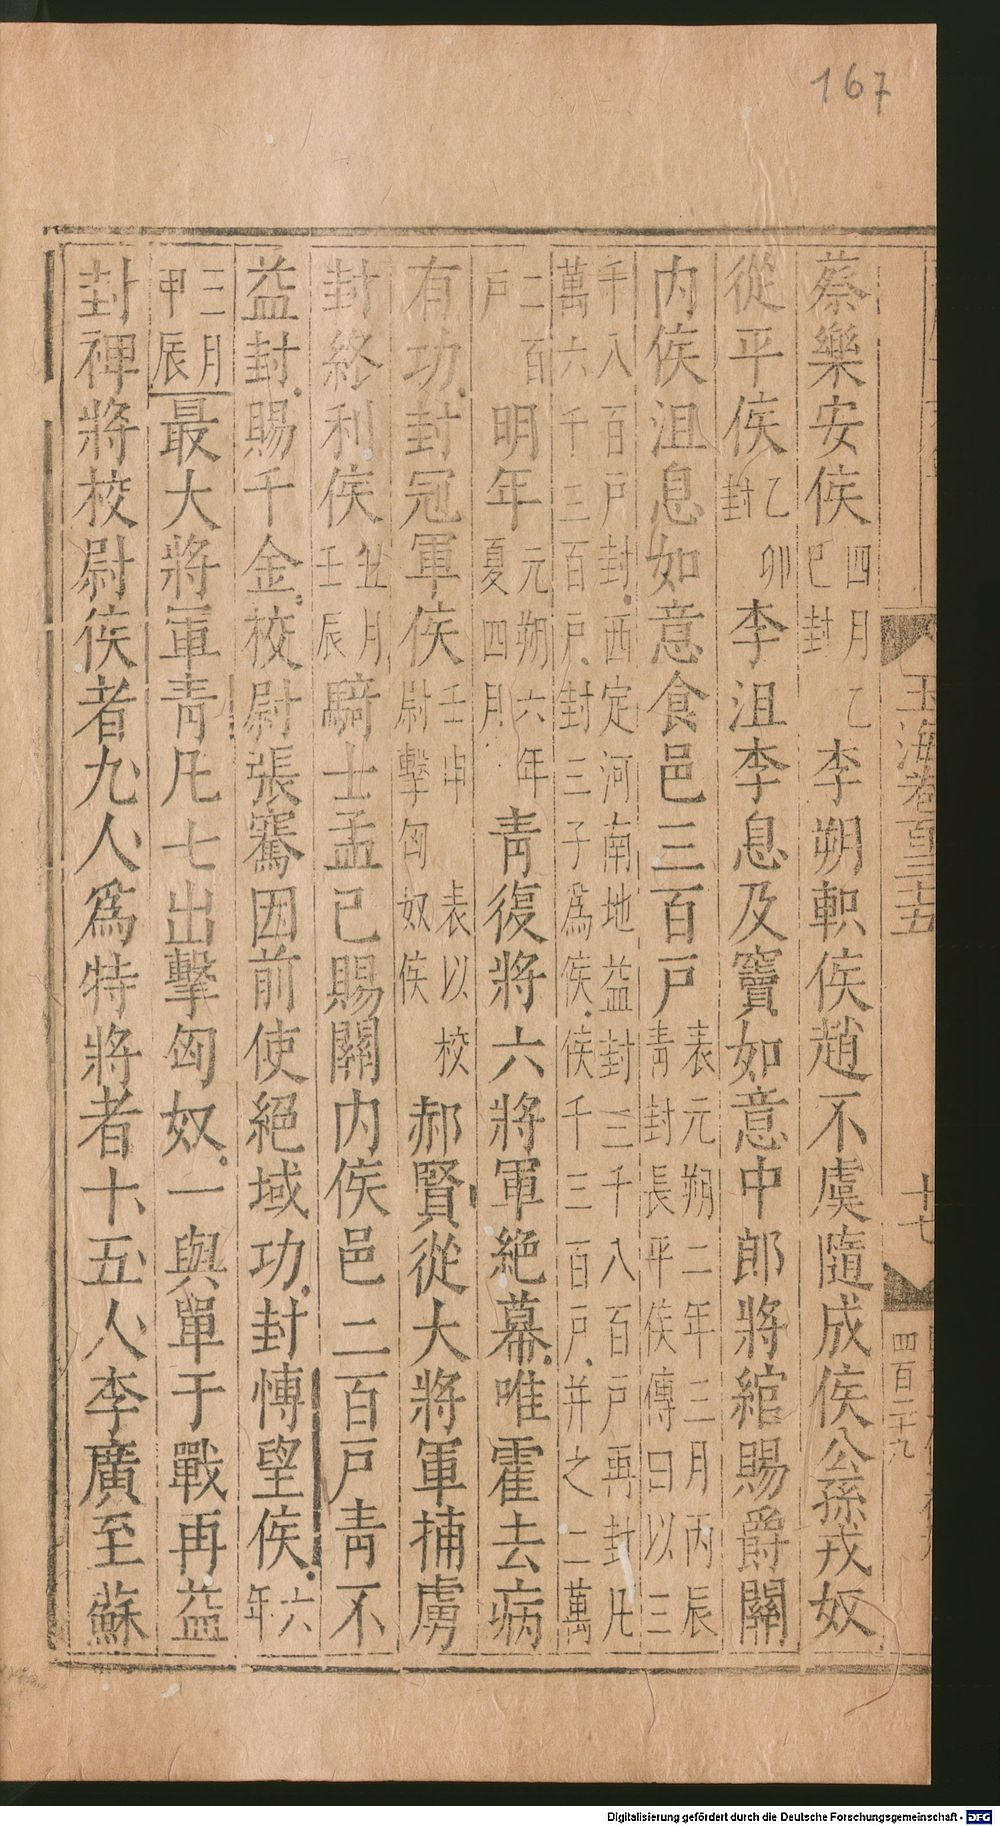 167
蔡樂安侯四月乙巳封李朔軹侯趙不虞隨成侯公孫戎奴
從平侯乙卯封李沮李息及竇如意中郎將綰賜爵關
內侯沮息如意食邑三百戶表元朔二年三月丙辰青封長平侯傳曰以三
千八百戶封西定河南地益封三千八百戶再封凡萬六千三百戶封三子爲侯侯千三百戶并之二萬
二百戶 明年元朔六年夏四月青復將六將軍絕幕唯霍去病
有功封冠軍侯壬申表以校尉擊匈奴侯郝賢從大將軍捕虜
封終利侯五月壬辰騎士孟已賜關內侯邑二百戶青不
益封賜千金校尉張騫因前使絕域功封博望侯六年
三月甲辰最大將軍青凡七出擊匈奴一與單于戰再益
封裨將校尉侯者九人爲特將者十五人李廣至蘇
玉海卷百三十五 十七 四百二十九
Digitalisierung gefördert durch die Deutsche Forschungsgemeinschaft - DFG